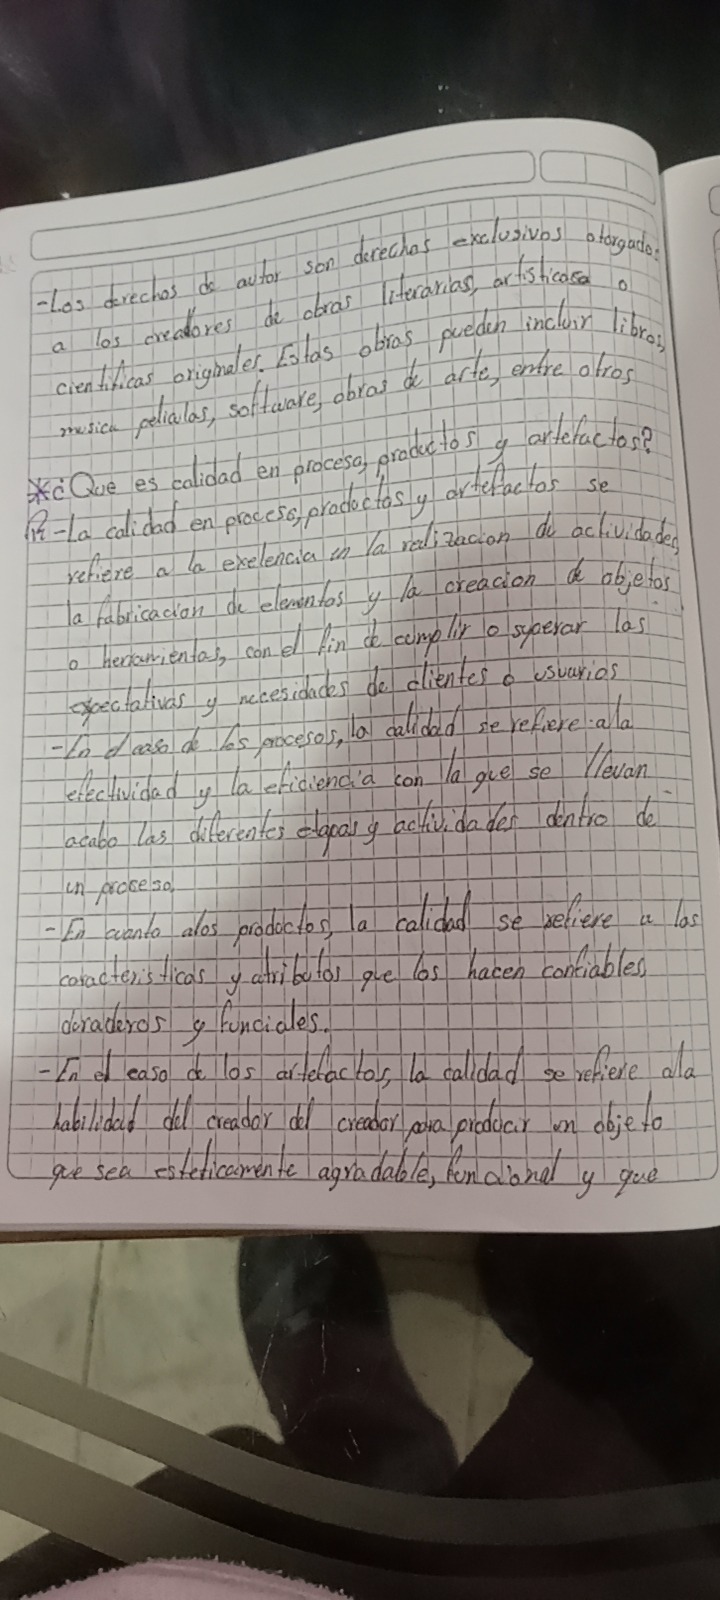 -Los derechos de autor son derechos exclusivos otorgados
a los creadores de obras literarias, artisticasa o
cientificas originales. Estas obras pueden incluir libros,
musica peliculas, software, obras de arte, entre otros
*¿Que es calidad en proceso, productos y artefactos?
R -La calidad en proceso, productos y artefactos se
refiere a la exelencia en la realizacion de actividades,
la fabricacion de elementos y la creacion de objetos
o herramientas, con el fin de cumplir o superar las
expectativas y necesidades de clientes o usuarios
-En el caso de los procesos, la calidad se refiere a la
efectividad y la eficiencia con la que se llevan
acabo las diferentes etapas y actividades dentro de
un proceso,
-En cuanto alos productos, la calidad se refiere a las
caracteristicas y atributos que los hacen confiables,
duraderos y funciales.
-En el caso de los artefactos, la calidad se refiere ala
habilidad del creador del creador para producir un objeto
que sea esteticamente agradable, funcional y que